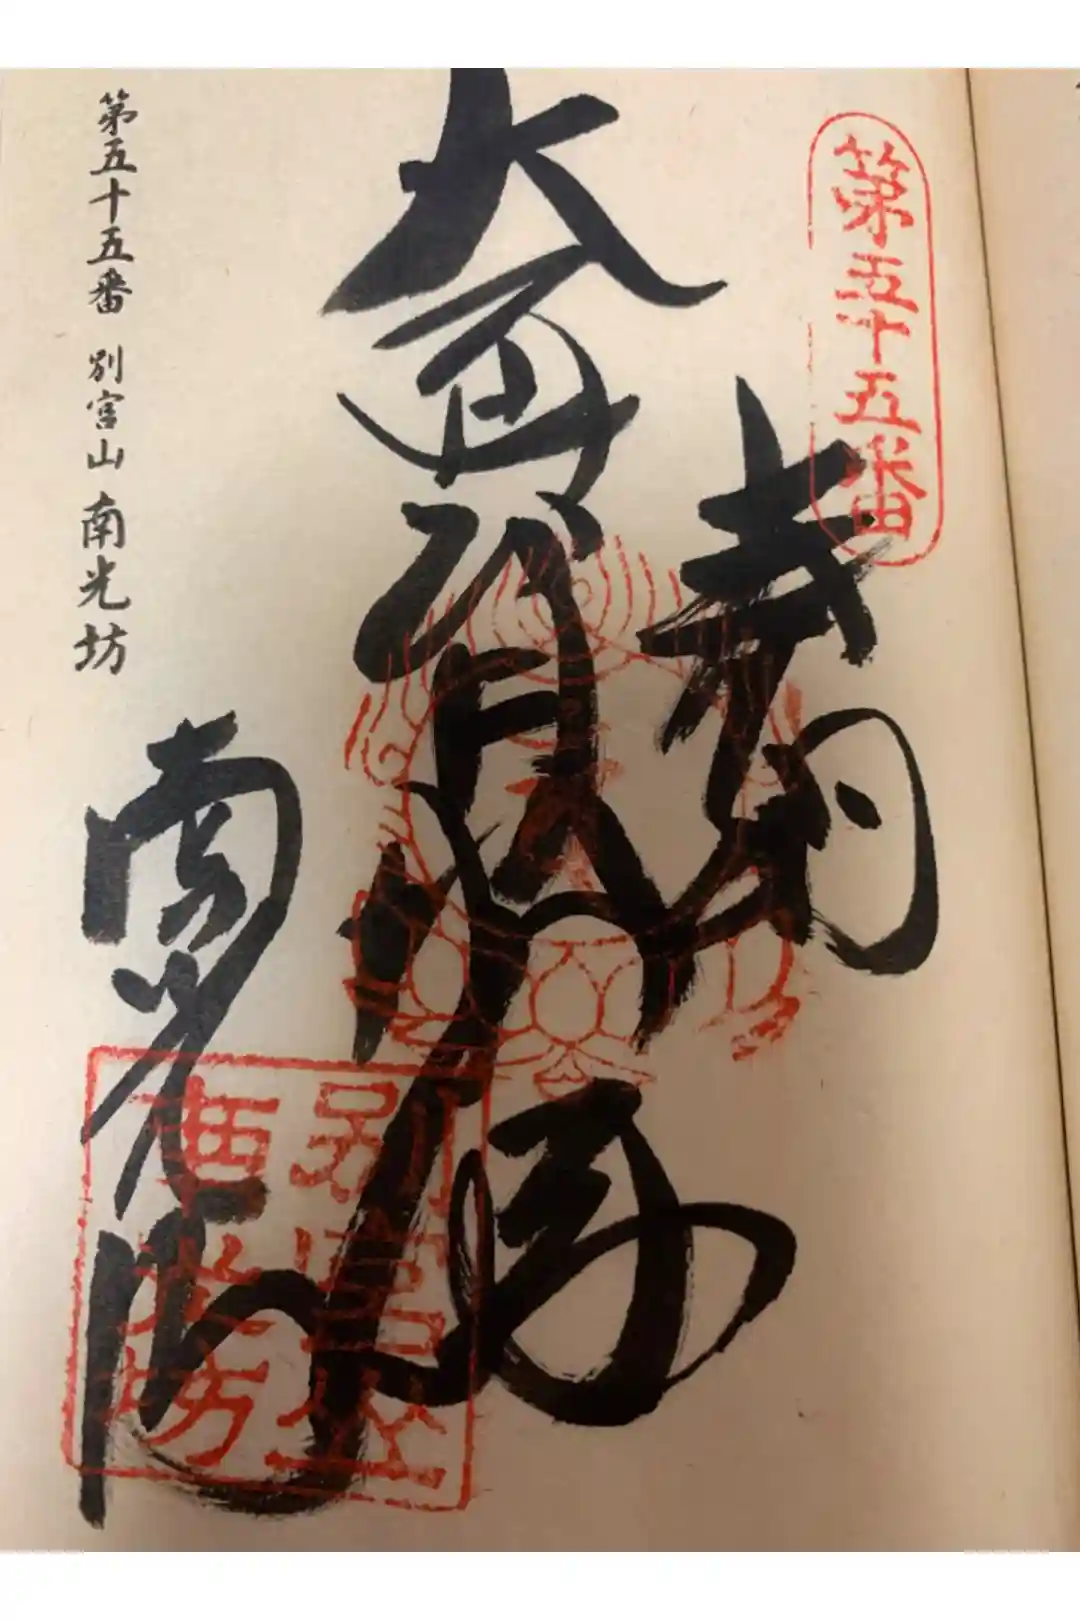 第五十五番
奉納
別宮山
南光坊
南光坊
第五十五番 別宮山 南光坊